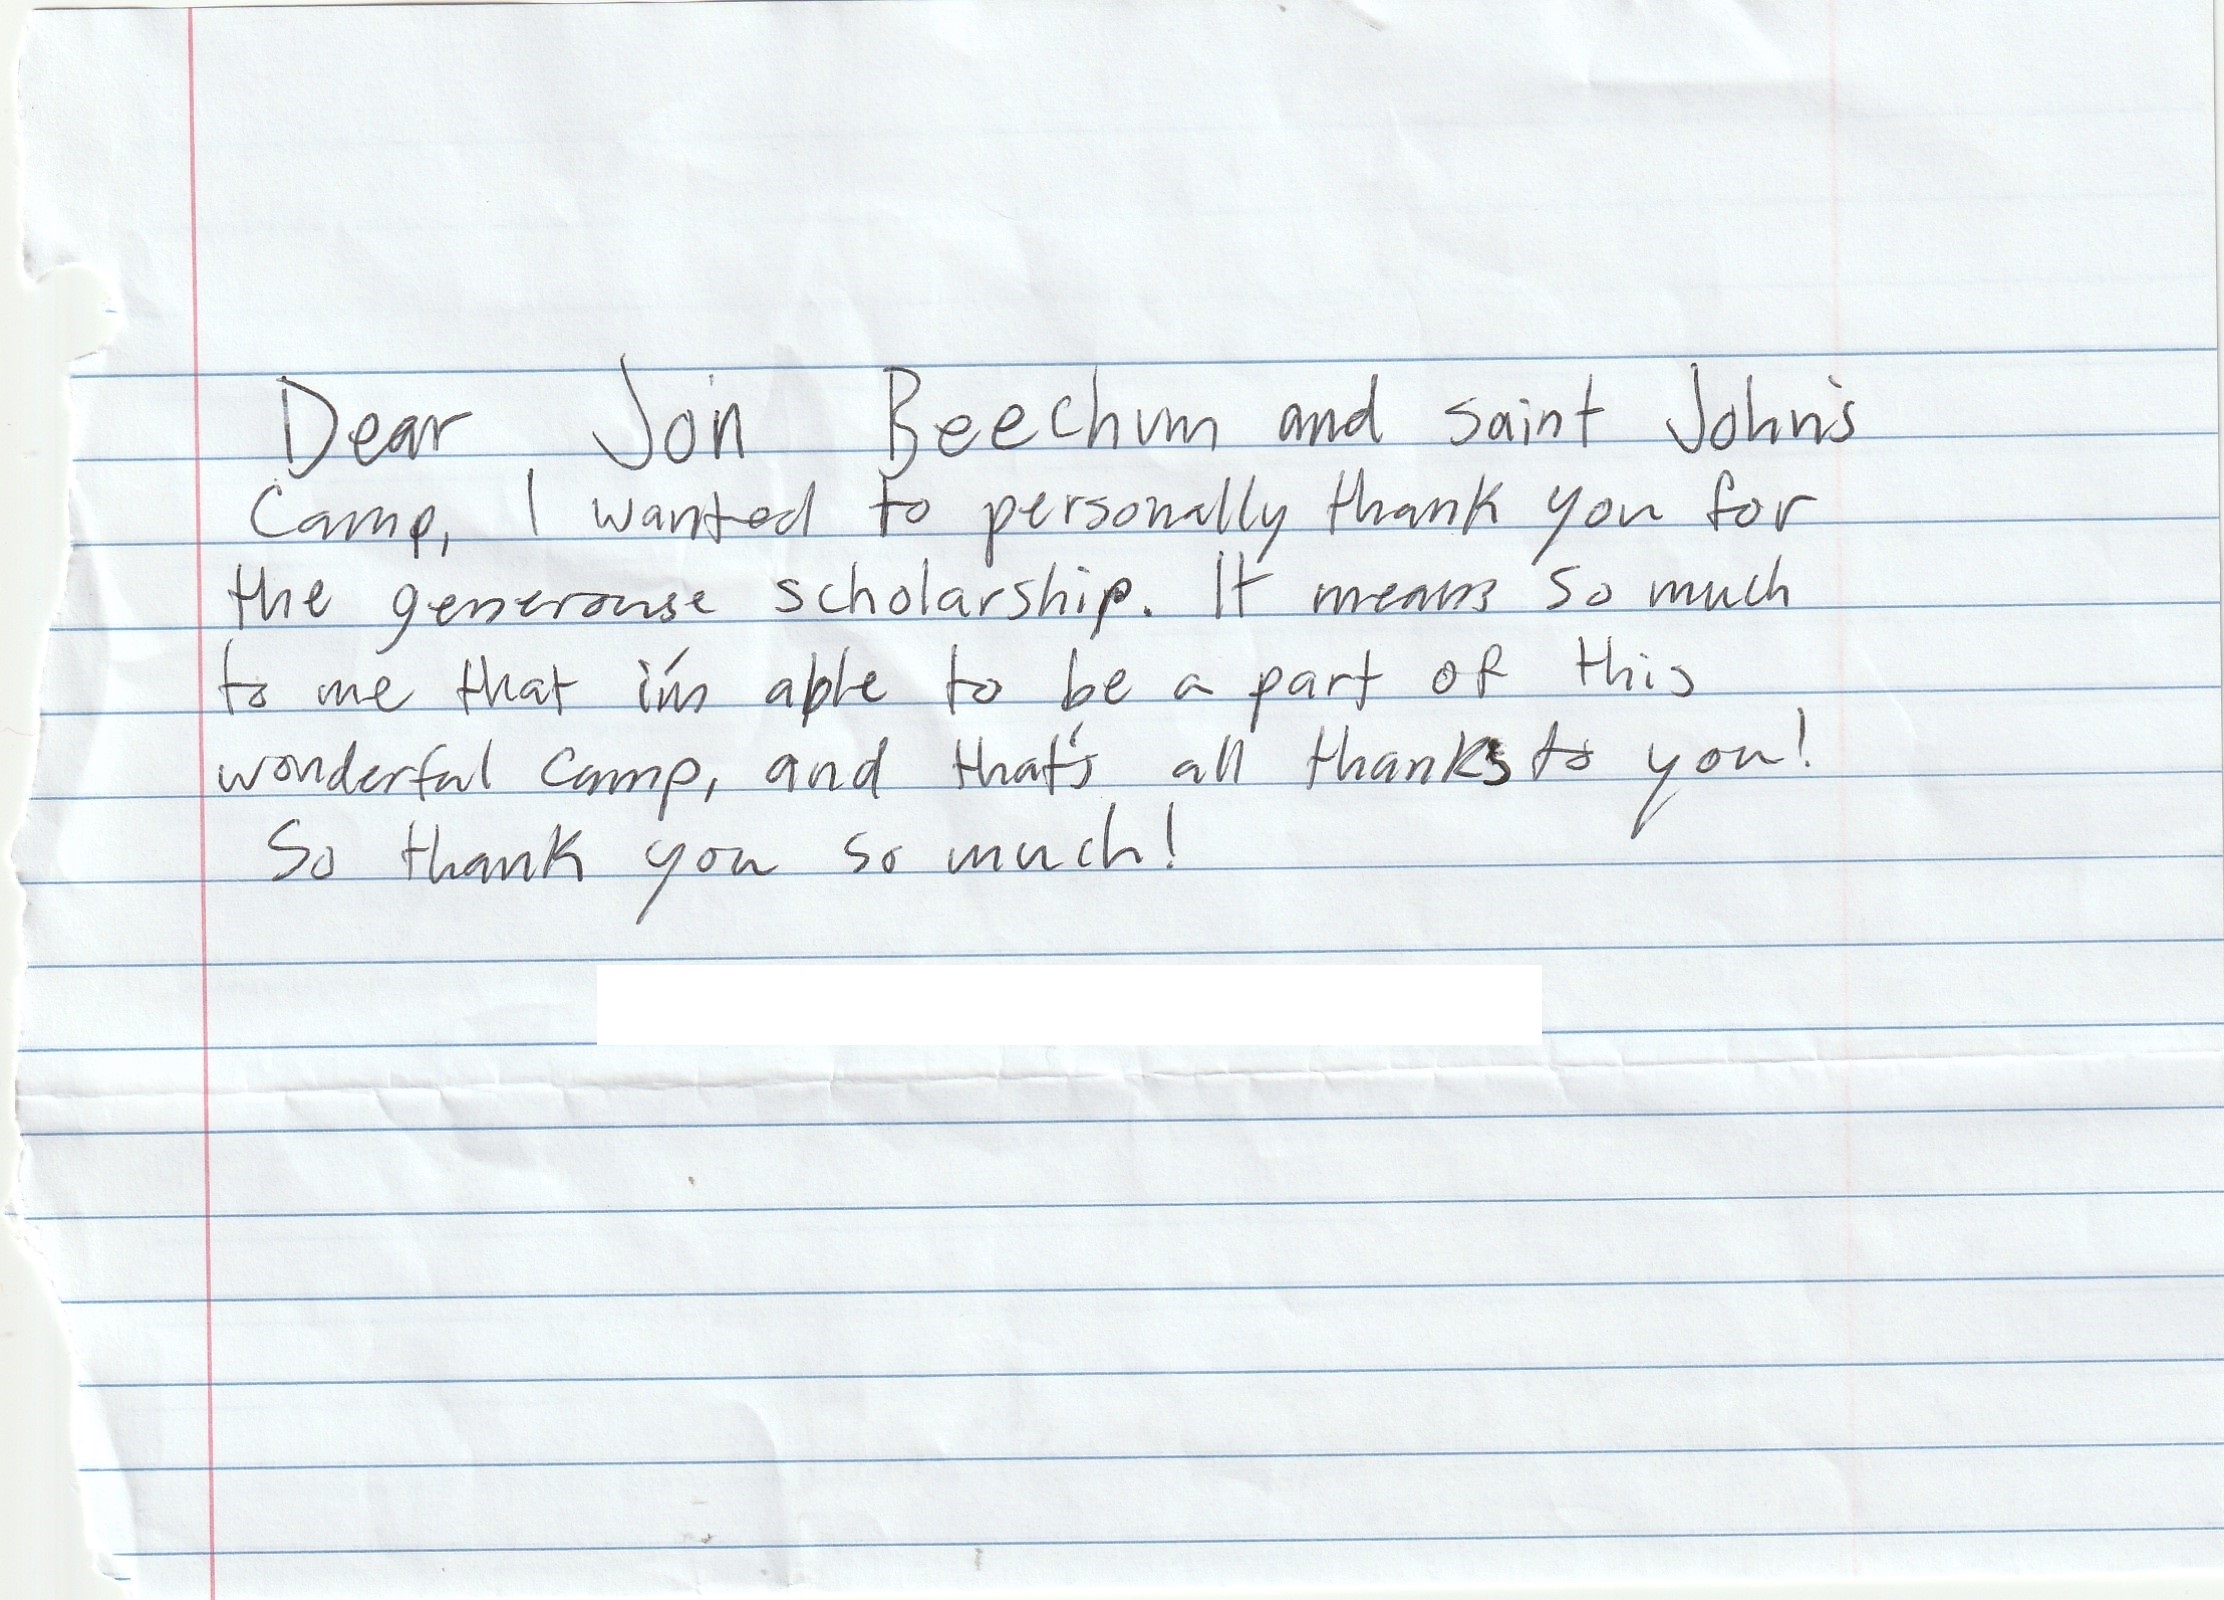 Dear Jon Beechum and saint John's
Camp, I wanted to personally thank you for
the generouse scholarship. It means so much
to me that i'm able to be a part of this
wonderful camp, and that's all thanks to you!
So thank you so much!